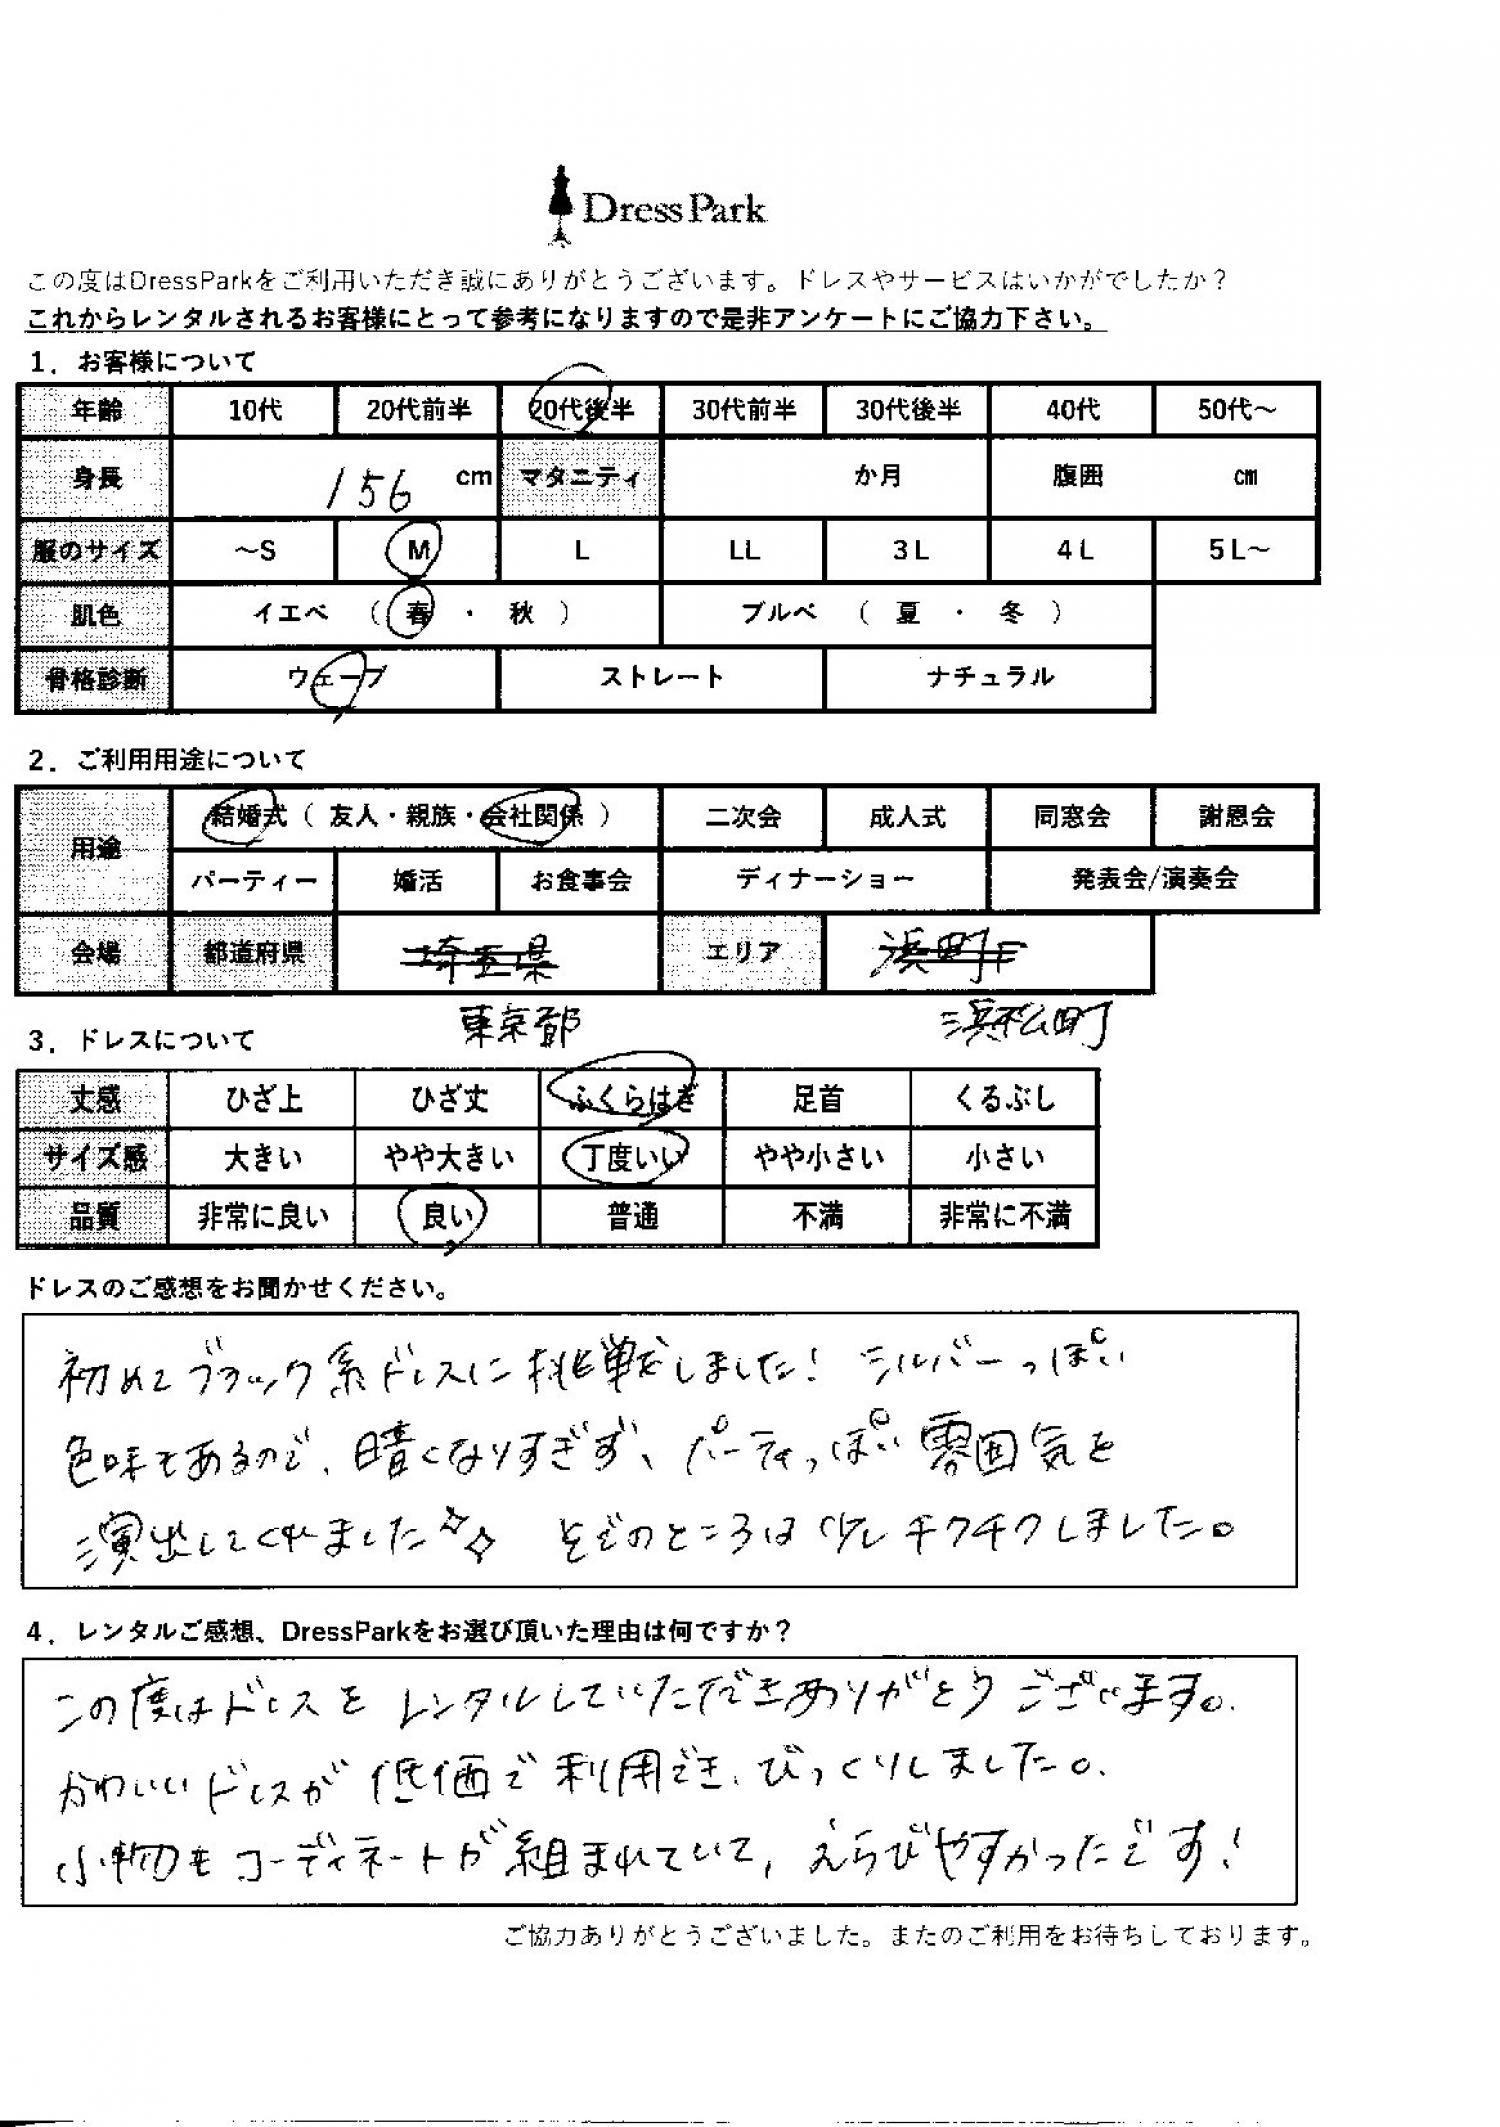 DressPark
この度はDressParkをご利用いただき誠にありがとうございます。ドレスやサービスはいかがでしたか？
これからレンタルされるお客様にとって参考になりますので是非アンケートにご協力下さい。
1．お客様について
年齢 10代 20代前半 20代後半 30代前半 30代後半 40代 50代～
身長 156 cm マタニティ か月 腹囲 cm
服のサイズ ～S M L LL 3L 4L 5L～
肌色 イエベ （ 春 ・ 秋 ） ブルベ （ 夏 ・ 冬 ）
骨格診断 ウェーブ ストレート ナチュラル
2．ご利用用途について
用途 結婚式（ 友人・親族・会社関係 ） 二次会 成人式 同窓会 謝恩会
パーティー 婚活 お食事会 ディナーショー 発表会/演奏会
会場 都道府県 埼玉県 エリア 浜町
東京都 浜松町
3．ドレスについて
丈感 ひざ上 ひざ丈 ふくらはぎ 足首 くるぶし
サイズ感 大きい やや大きい 丁度いい やや小さい 小さい
品質 非常に良い 良い 普通 不満 非常に不満
ドレスのご感想をお聞かせください。
初めてブラック系ドレスに挑戦しました！シルバーっぽい
色味もあるので、暗くなりすぎず、パーティっぽい雰囲気を
演出してくれました✧✧ そでのところは少しチクチクしました。
4．レンタルご感想、DressParkをお選び頂いた理由は何ですか？
この度はドレスをレンタルしていただきありがとうございます。
かわいいドレスが低価で利用でき、びっくりしました。
小物もコーディネートが組まれていて、えらびやすかったです！
ご協力ありがとうございました。またのご利用をお待ちしております。